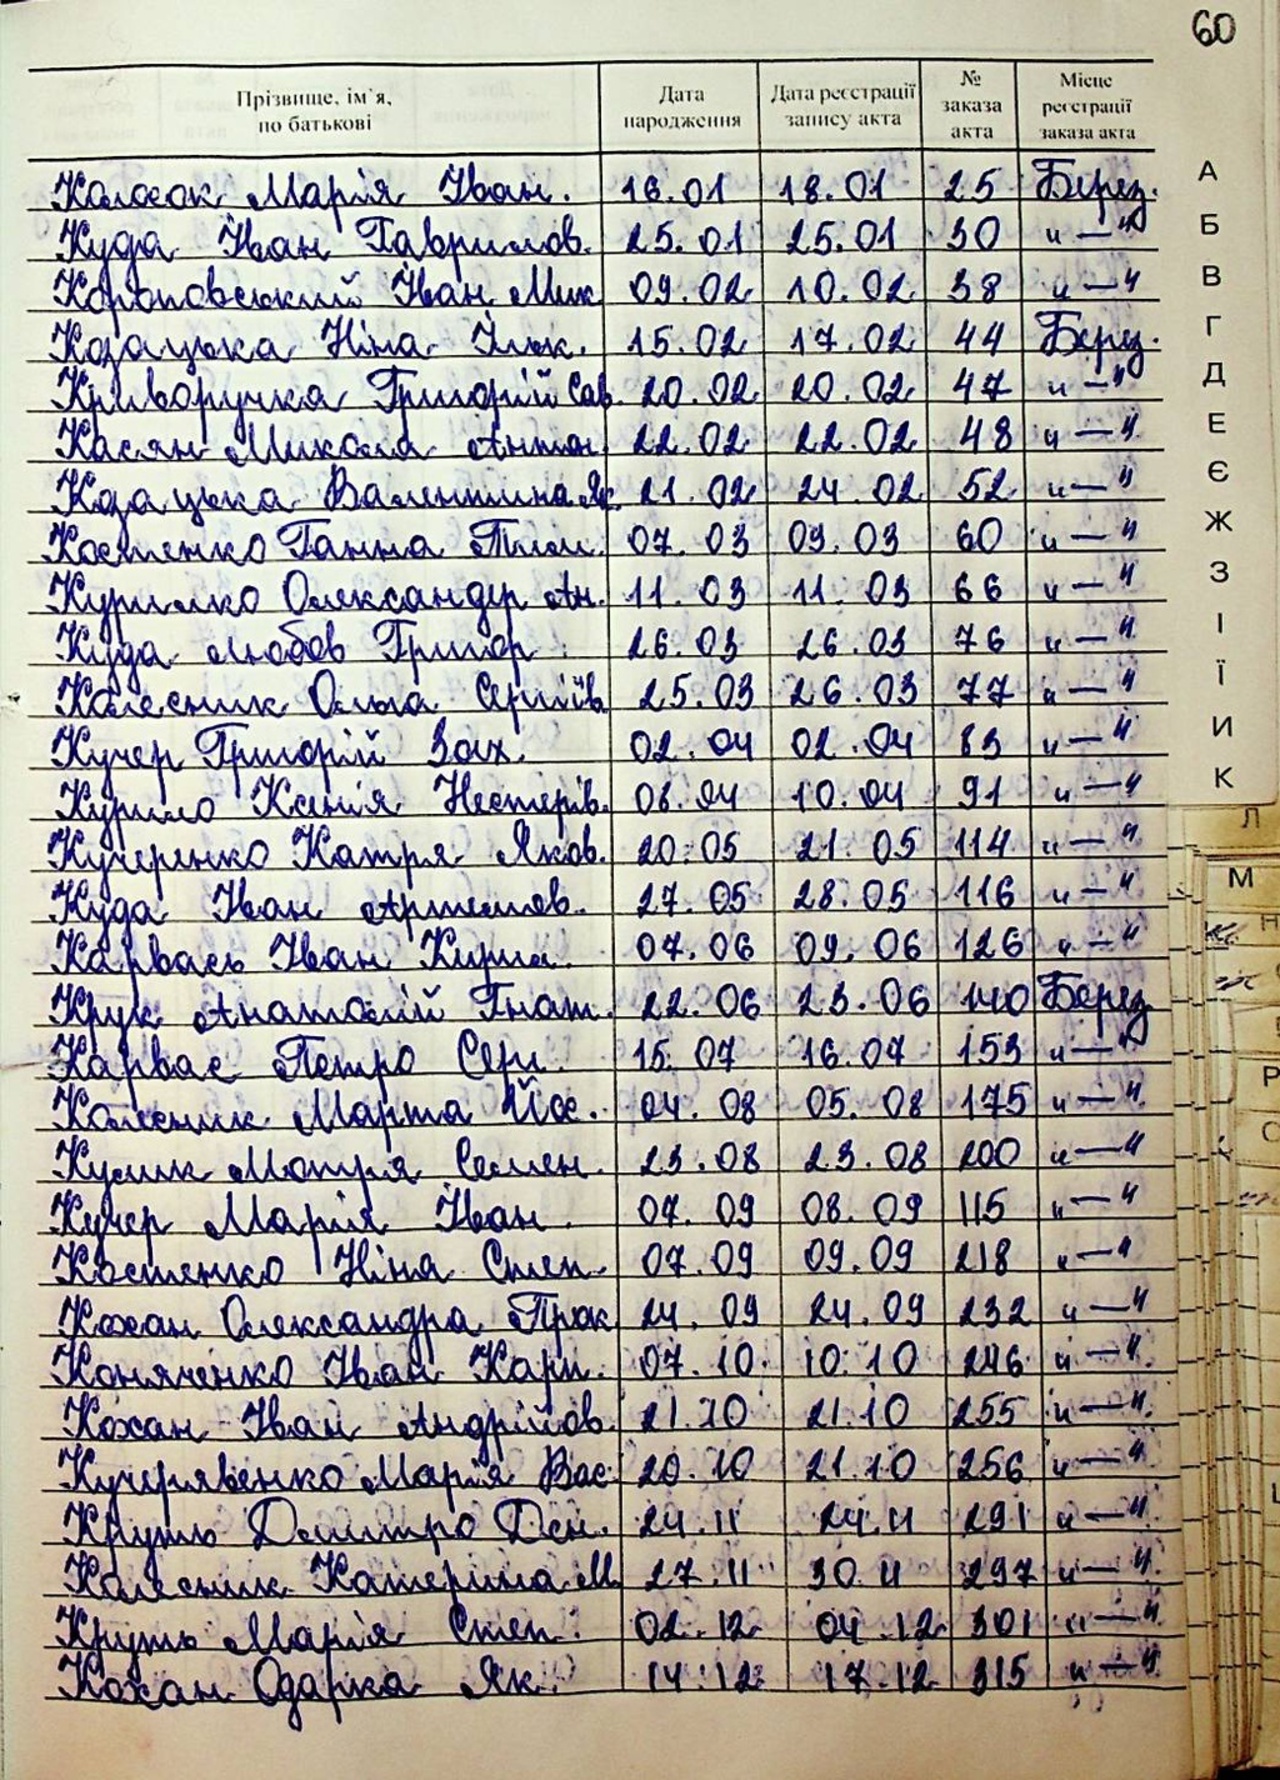 60
Прізвище, ім`я, по батькові Дата народження Дата реєстрації запису акта № заказа акта Місце реєстрації заказа акта
Колосок Марія Іван. 16.01 18.01 25 Берез.
Куда Іван Гаврилов. 25.01 25.01 30 "—"
Короповський Іван Мик 09.02 10.02 38 "—"
Козацька Ніна Ільк. 15.02 17.02 44 Берез.
Криворучка Григорій Сав. 20.02 20.02 47 "—"
Касян Микола Антон. 22.02 22.02 48 "—"
Козацька Валентина Як. 21.02 24.02 52 "—"
Костенко Ганна Тим. 07.03 09.03 60 "—"
Курилко Олександер Ан. 11.03 11.03 66 "—"
Куда Любов Григор. 26.03 26.03 76 "—"
Колесник Ольга Сергіїв 25.03 26.03 77 "—"
Кучер Григорій Зах. 02.04 02.04 83 "—"
Курило Ксенія Нестерів. 08.04 10.04 91 "—"
Кучеренко Катря Яков. 20.05 21.05 114 "—"
Куда Іван Артемов. 27.05 28.05 116 "—"
Карвась Іван Кирил. 07.06 09.06 126 "—"
Крук Анатолій Гнат. 22.06 23.06 140 Берез
Карвас Петро Серг. 15.07 16.07 153 "—"
Колесник Марта Йос. 04.08 05.08 175 "—"
Кулик Мотря Семен. 23.08 23.08 200 "—"
Кучер Марія Іван. 07.09 08.09 115 "—"
Костенко Ніна Степ. 07.09 09.09 218 "—"
Кохан Олександра Прок 24.09 24.09 232 "—"
Коняченко Іван Карп. 07.10 10.10 246 "—"
Кохан Іван Андрійов. 21.10 21.10 255 "—"
Кучерявенко Марія Вас. 20.10 21.10 256 "—"
Круть Дмитро Ден. 24.11 24.11 291 "—"
Колесник Катерина М. 27.11 30.11 297 "—"
Круть Марія Степ. 02.12 04.12 301 "—"
Кохан Одарка Як. 14.12 17.12 315 "—"
А
Б
В
Г
Д
Е
Є
Ж
З
І
Ї
И
К
Л
М
Н
Р
С